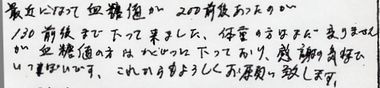 最近になって血糖値が200前後あったのが
130前後まで下って来ました、体重の方はまだ変りません
が血糖値の方はれぞつに下っており、感謝の気持で
いっぱいです。これからもよろしくお願い致します。